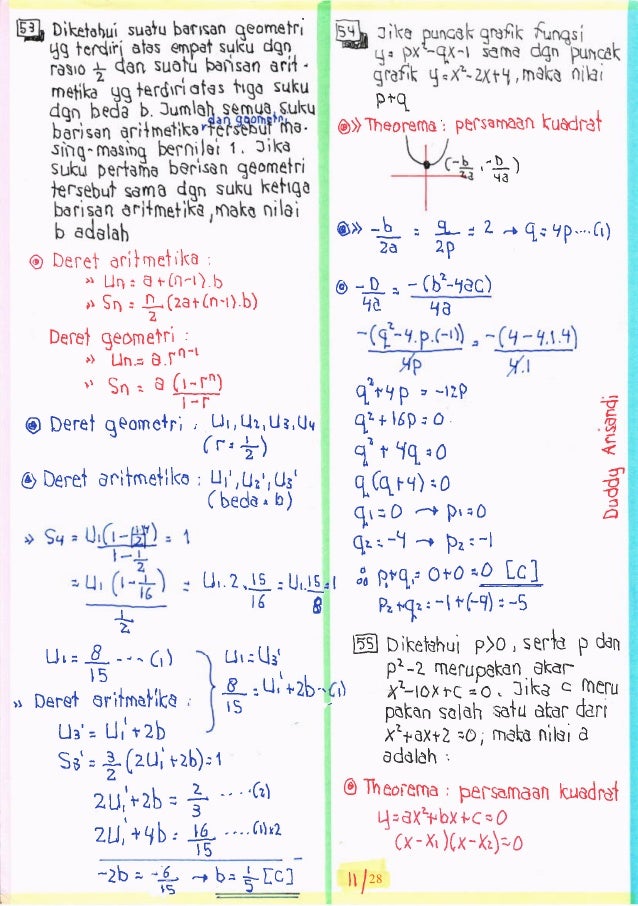 53. Diketahui suatu barisan geometri
yg terdiri atas empat suku dgn
rasio 1/2 dan suatu barisan arit-
metika yg terdiri atas tiga suku
dgn beda b. Jumlah semua suku
barisan aritmetika dan geometri tersebut ma-
sing-masing bernilai 1. Jika
suku pertama barisan geometri
tersebut sama dgn suku ketiga
barisan aritmetika, maka nilai
b adalah
Deret aritmetika :
» Un = a + (n-1).b
» Sn = n/2 (2a + (n-1).b)
Deret geometri :
» Un = a.r^n-1
» Sn = a (1-r^n)/1-r
Deret geometri : U1, U2, U3, U4
(r = 1/2)
Deret aritmetika : U1', U2', U3'
(beda = b)
» S4 = U1(1-(1/2)^4)/1-1/2 = 1
= U1 (1-1/16)/1/2 = U1.2.15/16 = U1.15/8 = 1
U1 = 8/15 --- (1) } U1 = U3'
8/15 = U1' + 2b - (1)
» Deret aritmatika :
U3' = U1' + 2b
S3' = 3/2 (2U1' + 2b) = 1
2U1' + 2b = 2/3 ....(2)
2U1' + 4b = 16/15 ....(1)x2
-2b = -6/15 → b = 1/5 [C]
54. Jika puncak grafik fungsi
y = px²-qx-1 sama dgn puncak
grafik y = x²-2x+4, maka nilai
p+q
» Theorema : persamaan kuadrat
(-b/2a , -D/4a)
» -b/2a = q/2p = 2 → q = 4p....(1)
-D/4a = -(b²-4ac)/4a
-(q²-4.p.(-1))/4p = -(4-4.1.4)/4.1
q²+4p = -12p
q²+16p = 0
q²+4q = 0
q(q+4) = 0
q1 = 0 → p1 = 0
q2 = -4 → p2 = -1
∴ p1+q1 = 0+0 = 0 [C]
p2+q2 = -1+(-4) = -5
55 Diketahui p>0, serta p dan
p²-2 merupakan akar
x²-10x+c = 0. Jika c meru
pakan salah satu akar dari
x²+ax+2 = 0, maka nilai a
adalah :
Theorema : persamaan kuadrat
y = ax²+bx+c = 0
(x-x1)(x-x2) = 0
11/28
Duddy Arisandi